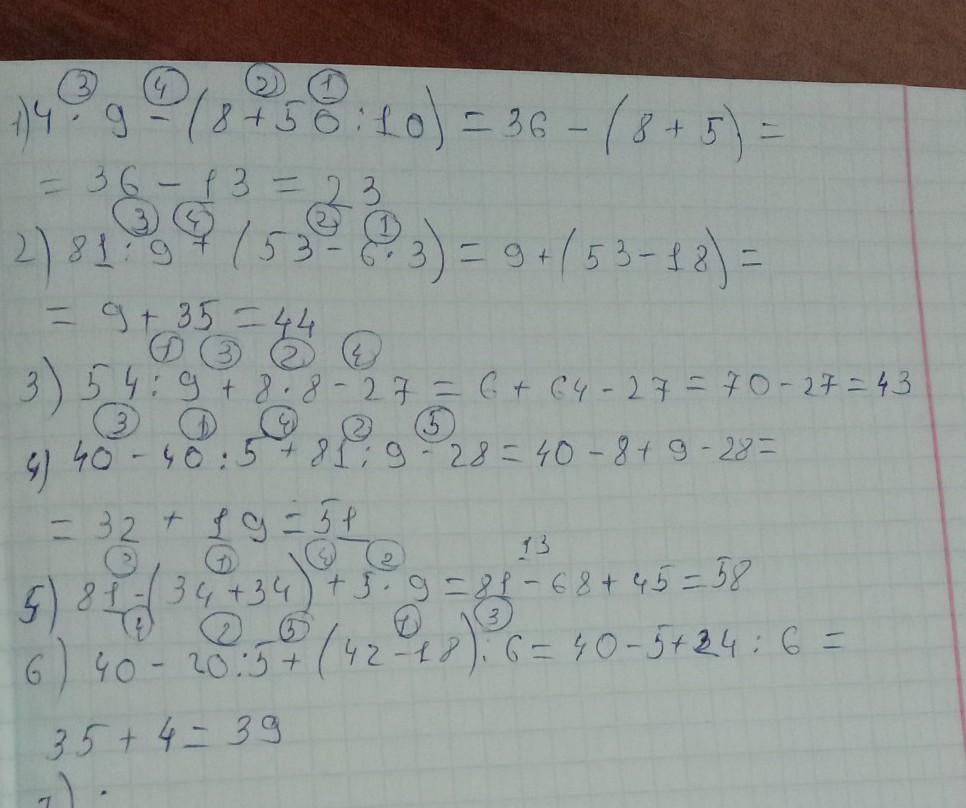 ③ ④ ② ①
1) 4 · 9 - (8 + 50 : 10) = 36 - (8 + 5) =
= 36 - 13 = 23
③ ④ ② ①
2) 81 : 9 + (53 - 6 · 3) = 9 + (53 - 18) =
= 9 + 35 = 44
① ③ ② ④
3) 54 : 9 + 8 · 8 - 27 = 6 + 64 - 27 = 70 - 27 = 43
③ ① ④ ② ⑤
4) 40 - 40 : 5 + 81 : 9 - 28 = 40 - 8 + 9 - 28 =
= 32 + 19 = 51
③ ① ④ ② 13
5) 81 - (34 + 34) + 5 · 9 = 81 - 68 + 45 = 58
④ ② ⑤ ① ③
6) 40 - 20 : 5 + (42 - 18) : 6 = 40 - 5 + 24 : 6 =
35 + 4 = 39